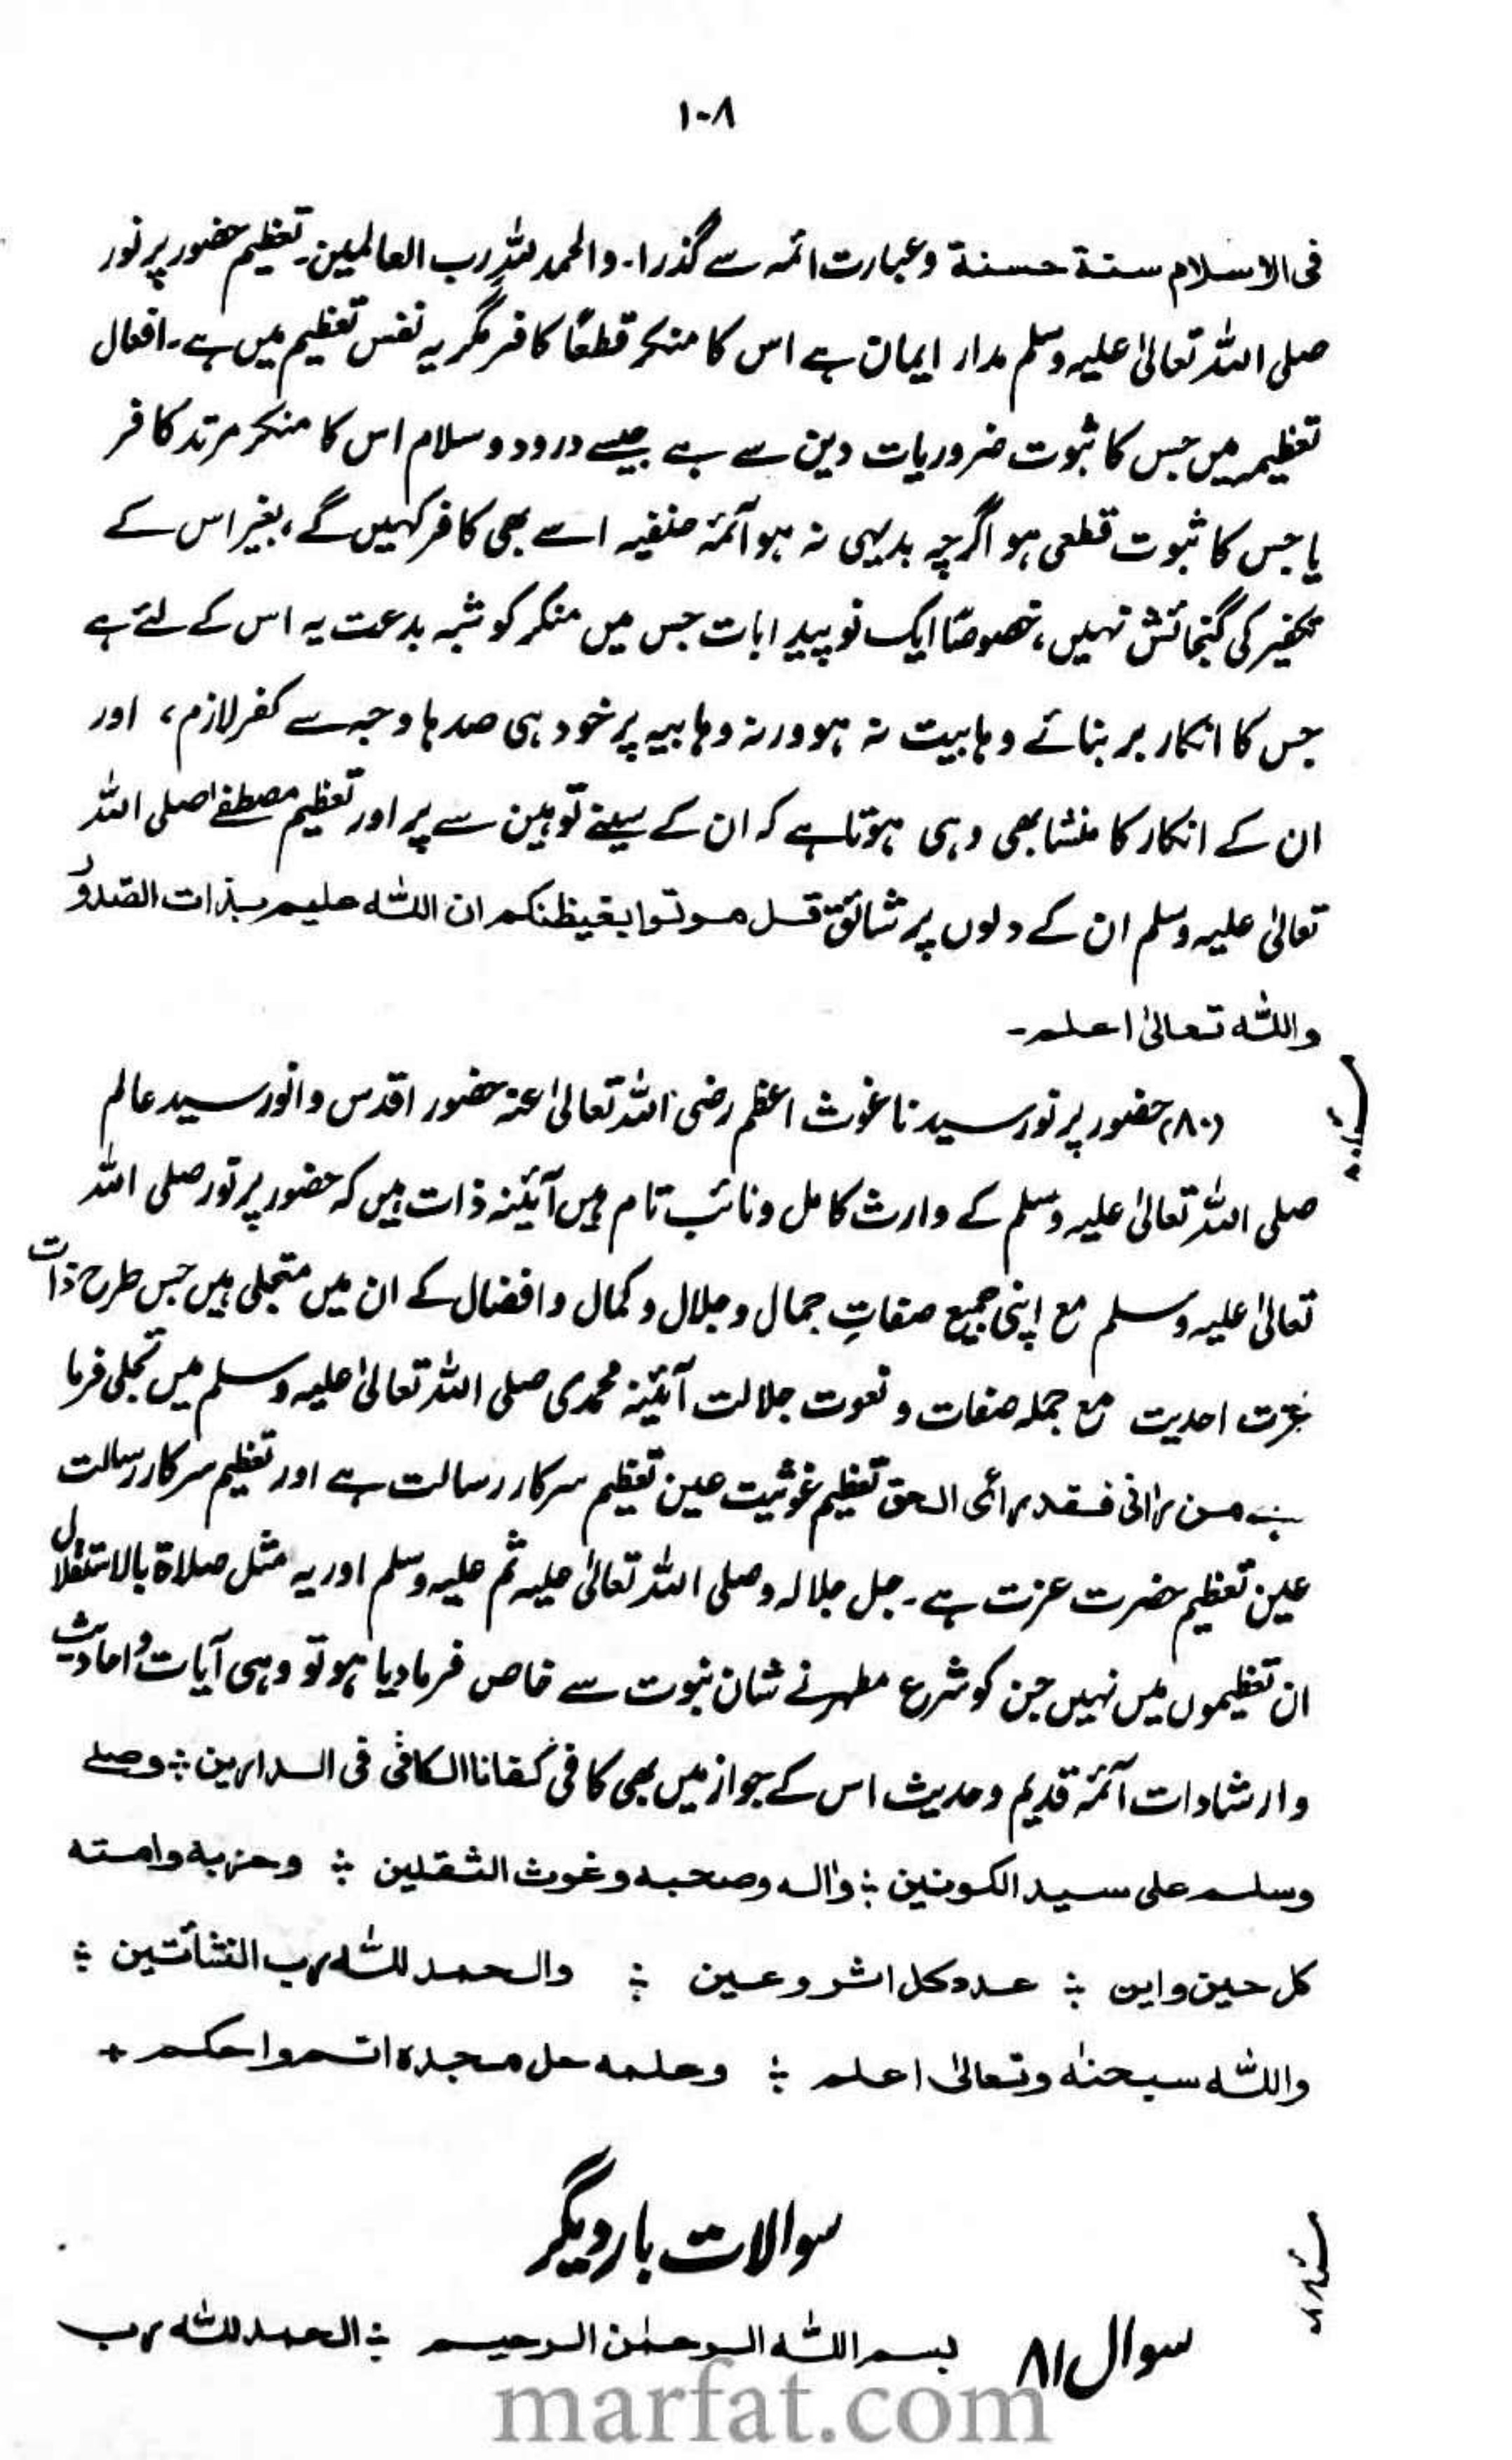 ۱۰۸
فی الاسلام سنۃ حسنۃ وعبارت ائمہ سے گذرا۔ والحمد للہ رب العالمین۔ تعظیم حضور پرنور
صلی اللہ تعالیٰ علیہ وسلم مدار ایمان ہے اس کا منکر قطعًا کافر مگر یہ نفس تعظیم میں ہے۔ افعال
تعظیم میں جس کا ثبوت ضروریات دین سے ہے جیسے درود وسلام اس کا منکر مرتد کافر
یا جس کا ثبوت قطعی ہو اگرچہ بدیہی نہ ہو آئمۂ حنفیہ اسے بھی کافر کہیں گے، بغیر اس کے
تکفیر کی گنجائش نہیں، خصوصًا ایک نوپیدا بات جس میں منکر کو شبہ بدعت یہ اس کے لئے ہے
جس کا انکار بر بنائے وہابیت نہ ہو ورنہ وہابیہ پر خود ہی صدہا وجہ سے کفر لازم، اور
ان کے انکار کا منشا بھی وہی ہوتا ہے کہ ان کے سینے توہین سے پر اور تعظیم مصطفےٰ صلی اللہ
تعالیٰ علیہ وسلم ان کے دلوں پر شائق قل موتوا بغیظکم ان اللہ علیم بذات الصدور
واللہ تعالیٰ اعلم۔
(۸۰) حضور پرنور سیدنا غوث اعظم رضی اللہ تعالیٰ عنہ حضور اقدس وانور سید عالم
صلی اللہ تعالیٰ علیہ وسلم کے وارث کامل ونائب تام ہیں آئینہ ذات ہیں کہ حضور پرنور صلی اللہ
تعالیٰ علیہ وسلم مع اپنی جمیع صفاتِ جمال وجلال وکمال وافضال کے ان میں متجلی ہیں جس طرح ذات
عزت احدیت مع جملہ صفات ونعوت جلالت آئینہ محمدی صلی اللہ تعالیٰ علیہ وسلم میں تجلی فرما
ہے من رانی فقد رأی الحق تعظیم غوثیت عین تعظیم سرکار رسالت ہے اور تعظیم سرکار رسالت
عین تعظیم حضرت عزت ہے۔ جل جلالہ وصلی اللہ تعالیٰ علیہ ثم علیہ وسلم اور یہ مثل صلاۃ بالاستقلال
ان تعظیموں میں نہیں جن کو شرع مطہر نے شان نبوت سے خاص فرمادیا ہو تو وہی آیات و احادیث
وارشادات آئمہ قدیم وحدیث اس کے جواز میں بھی کافی کفانا الکافی فی الدارین ؛ وصلے
وسلم علی سید الکونین ؛ واٰلہ وصحبہ وغوث الثقلین ؛ وحزبہ وامتہ
کل حین واین ؛ عدد کل اثر وعین ؛ والحمد للہ رب النشأتین ؛
واللہ سبحنہ وتعالیٰ اعلم ؛ وعلمہ جل مجدہ اتم واحکم +
سوالات بار دیگر
سوال ۸۱ بسم اللہ الرحمٰن الرحیم ؛ الحمد للہ رب
marfat.com